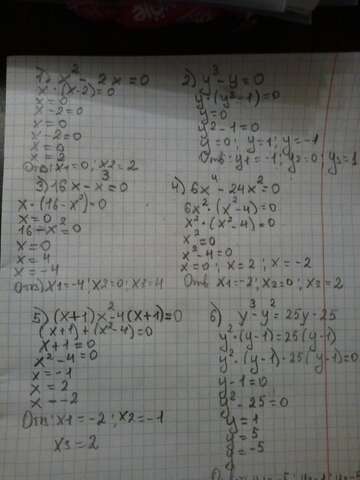 1) x² - 2x = 0
x · (x-2) = 0
x = 0
x - 2 = 0
x = 0
x - 2 = 0
x = 0
x = 2
Отв: x1 = 0; x2 = 2
2) y³ - y = 0
y · (y² - 1) = 0
y = 0
y² - 1 = 0
y = 0; y = 1; y = -1
Отв: y1 = -1; y2 = 0; y3 = 1
3) 16x - x³ = 0
x · (16 - x²) = 0
x = 0
16 - x² = 0
x = 0
x = 4
x = -4
Отв) x1 = -4; x2 = 0; x3 = 4
4) 6x⁴ - 24x² = 0
6x² · (x² - 4) = 0
x² · (x² - 4) = 0
x² = 0
x² - 4 = 0
x = 0; x = 2; x = -2
Отв x1 = -2; x2 = 0; x3 = 2
5) (x+1)x² - 4(x+1) = 0
(x+1) + (x² - 4) = 0
x + 1 = 0
x² - 4 = 0
x = -1
x = 2
x = -2
Отв: x1 = -2; x2 = -1
x3 = 2
6) y³ - y² = 25y - 25
y² · (y-1) = 25(y-1)
y² · (y-1) - 25(y-1) = 0
y - 1 = 0
y² - 25 = 0
y = 1
y = 5
y = -5